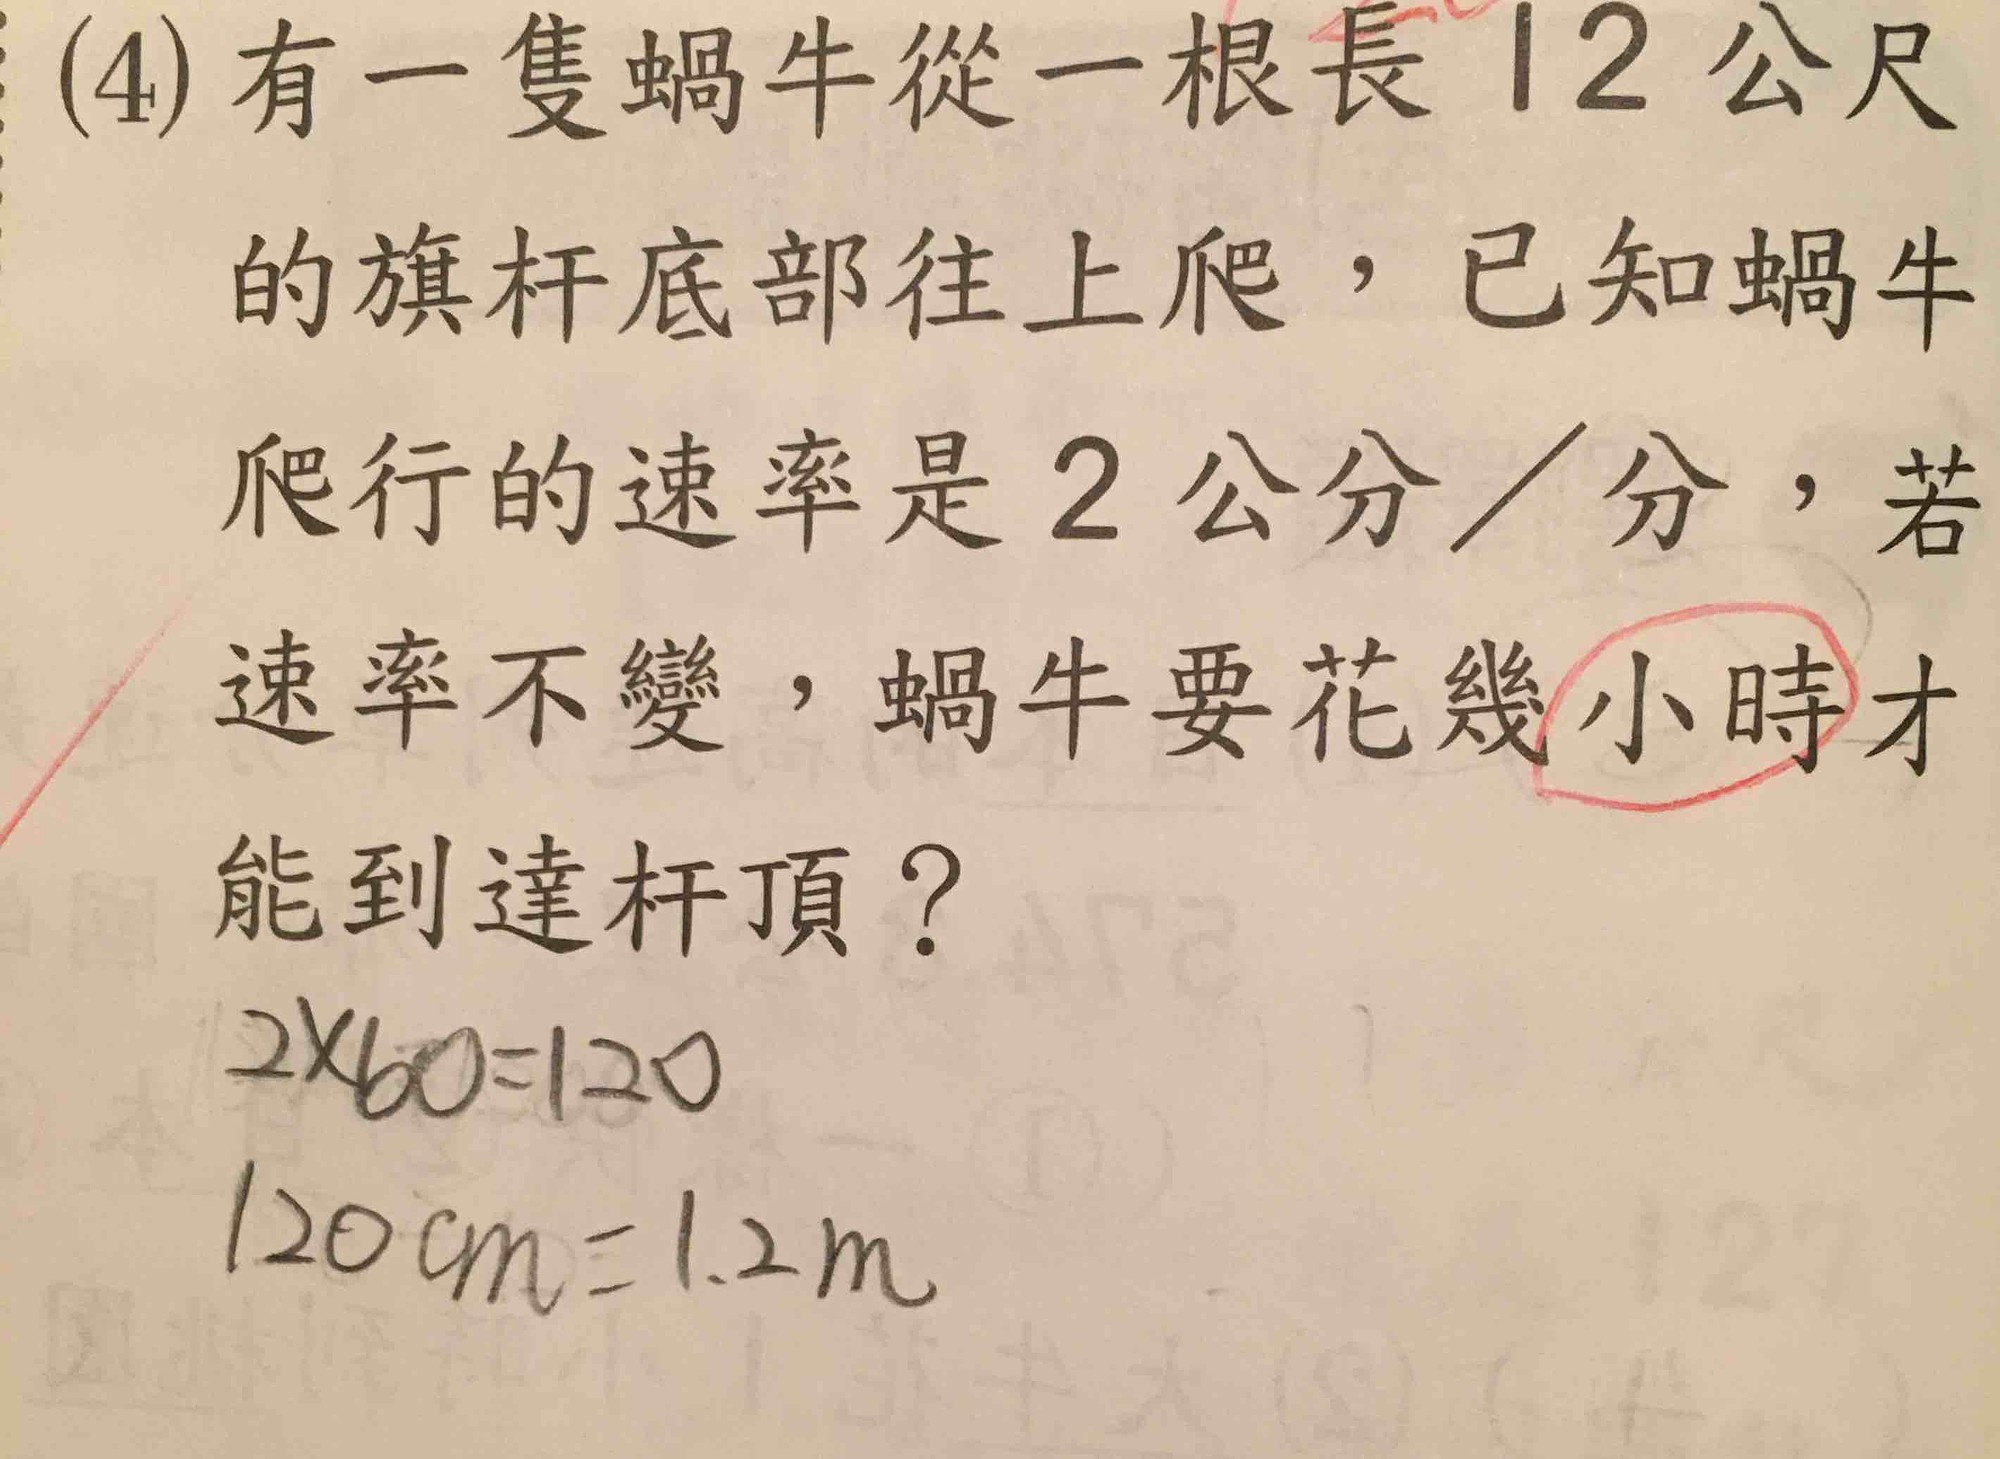 (4) 有一隻蝸牛從一根長 12 公尺
的旗杆底部往上爬，已知蝸牛
爬行的速率是 2 公分／分，若
速率不變，蝸牛要花幾小時才
能到達杆頂？
2×60=120
120cm=1.2m